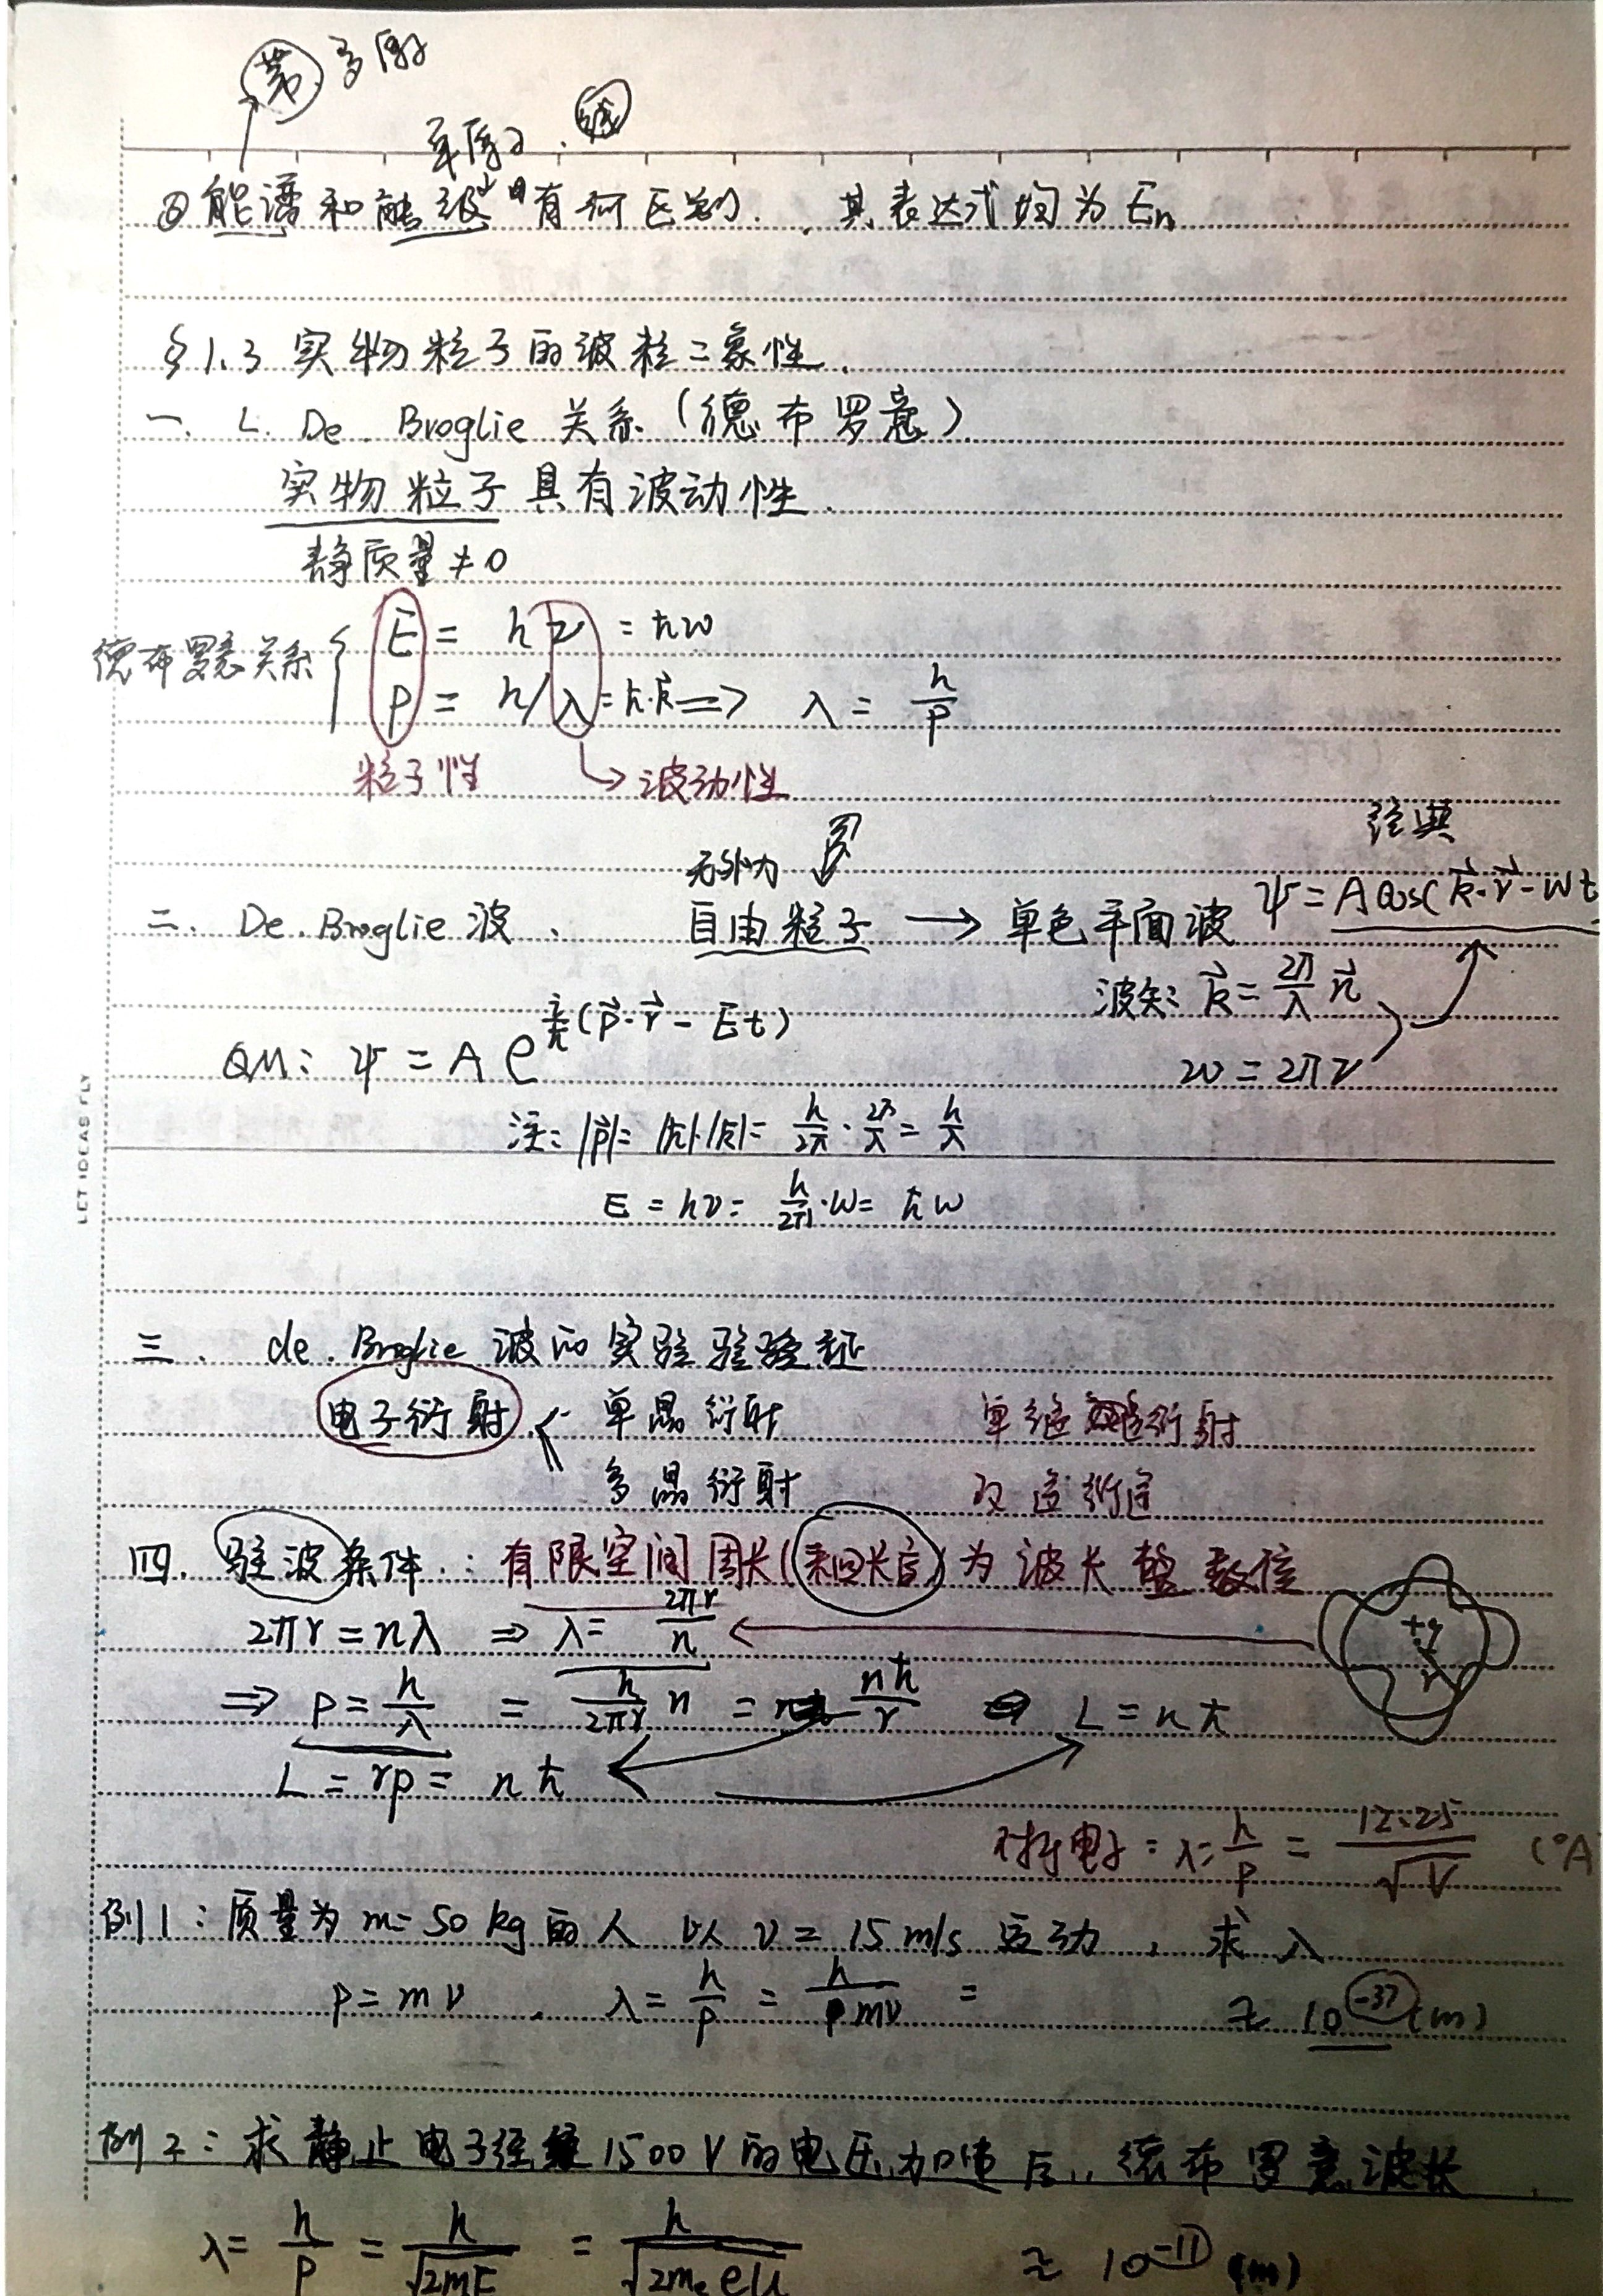 带 多原子
单原子. 线
② 能谱和能级有何区别. 其表达式均为 En
§1.3 实物粒子的波粒二象性.
一. L. De. Broglie 关系 (德布罗意)
实物粒子具有波动性.
静质量 ≠ 0
德布罗意关系 { E = hν = ħω
P = h/λ = ħ·k ⇒ λ = h/P
粒子性 → 波动性
经典
无外力
二. De. Broglie 波. 自由粒子 → 单色平面波 ψ = A cos(k⃗·r⃗ - ωt
波矢: k⃗ = 2π/λ n⃗
QM: ψ = A e^{i/ħ (p⃗·r⃗ - Et)}
ω = 2πν
注: |p⃗| = |ħ|·|k⃗| = h/2π · 2π/λ = h/λ
LET IDEAS FLY
E = hν = h/2π · ω = ħω
三. de. Broglie 波的实验验证
电子衍射 < 单晶衍射 单缝衍射
多晶衍射
四. 驻波条件: 有限空间周长(来回长度)为波长整数倍
2πr = nλ ⇒ λ = 2πr/n ←
+q
r
⇒ P = h/λ = h/2πr n = nħ/r ⇒ L = nħ
L = rp = nħ
对于电子: λ = h/P = 12.25/√V (°A
例1: 质量为 m = 50 kg 的人以 v = 15 m/s 运动, 求 λ
P = mv. λ = h/P = h/mv = ≈ 10^{-37} (m)
例2: 求静止电子经 1500 V 的电压加速后, 德布罗意波长.
λ = h/P = h/√2mE = h/√2mₑeU ≈ 10^{-11} (m)